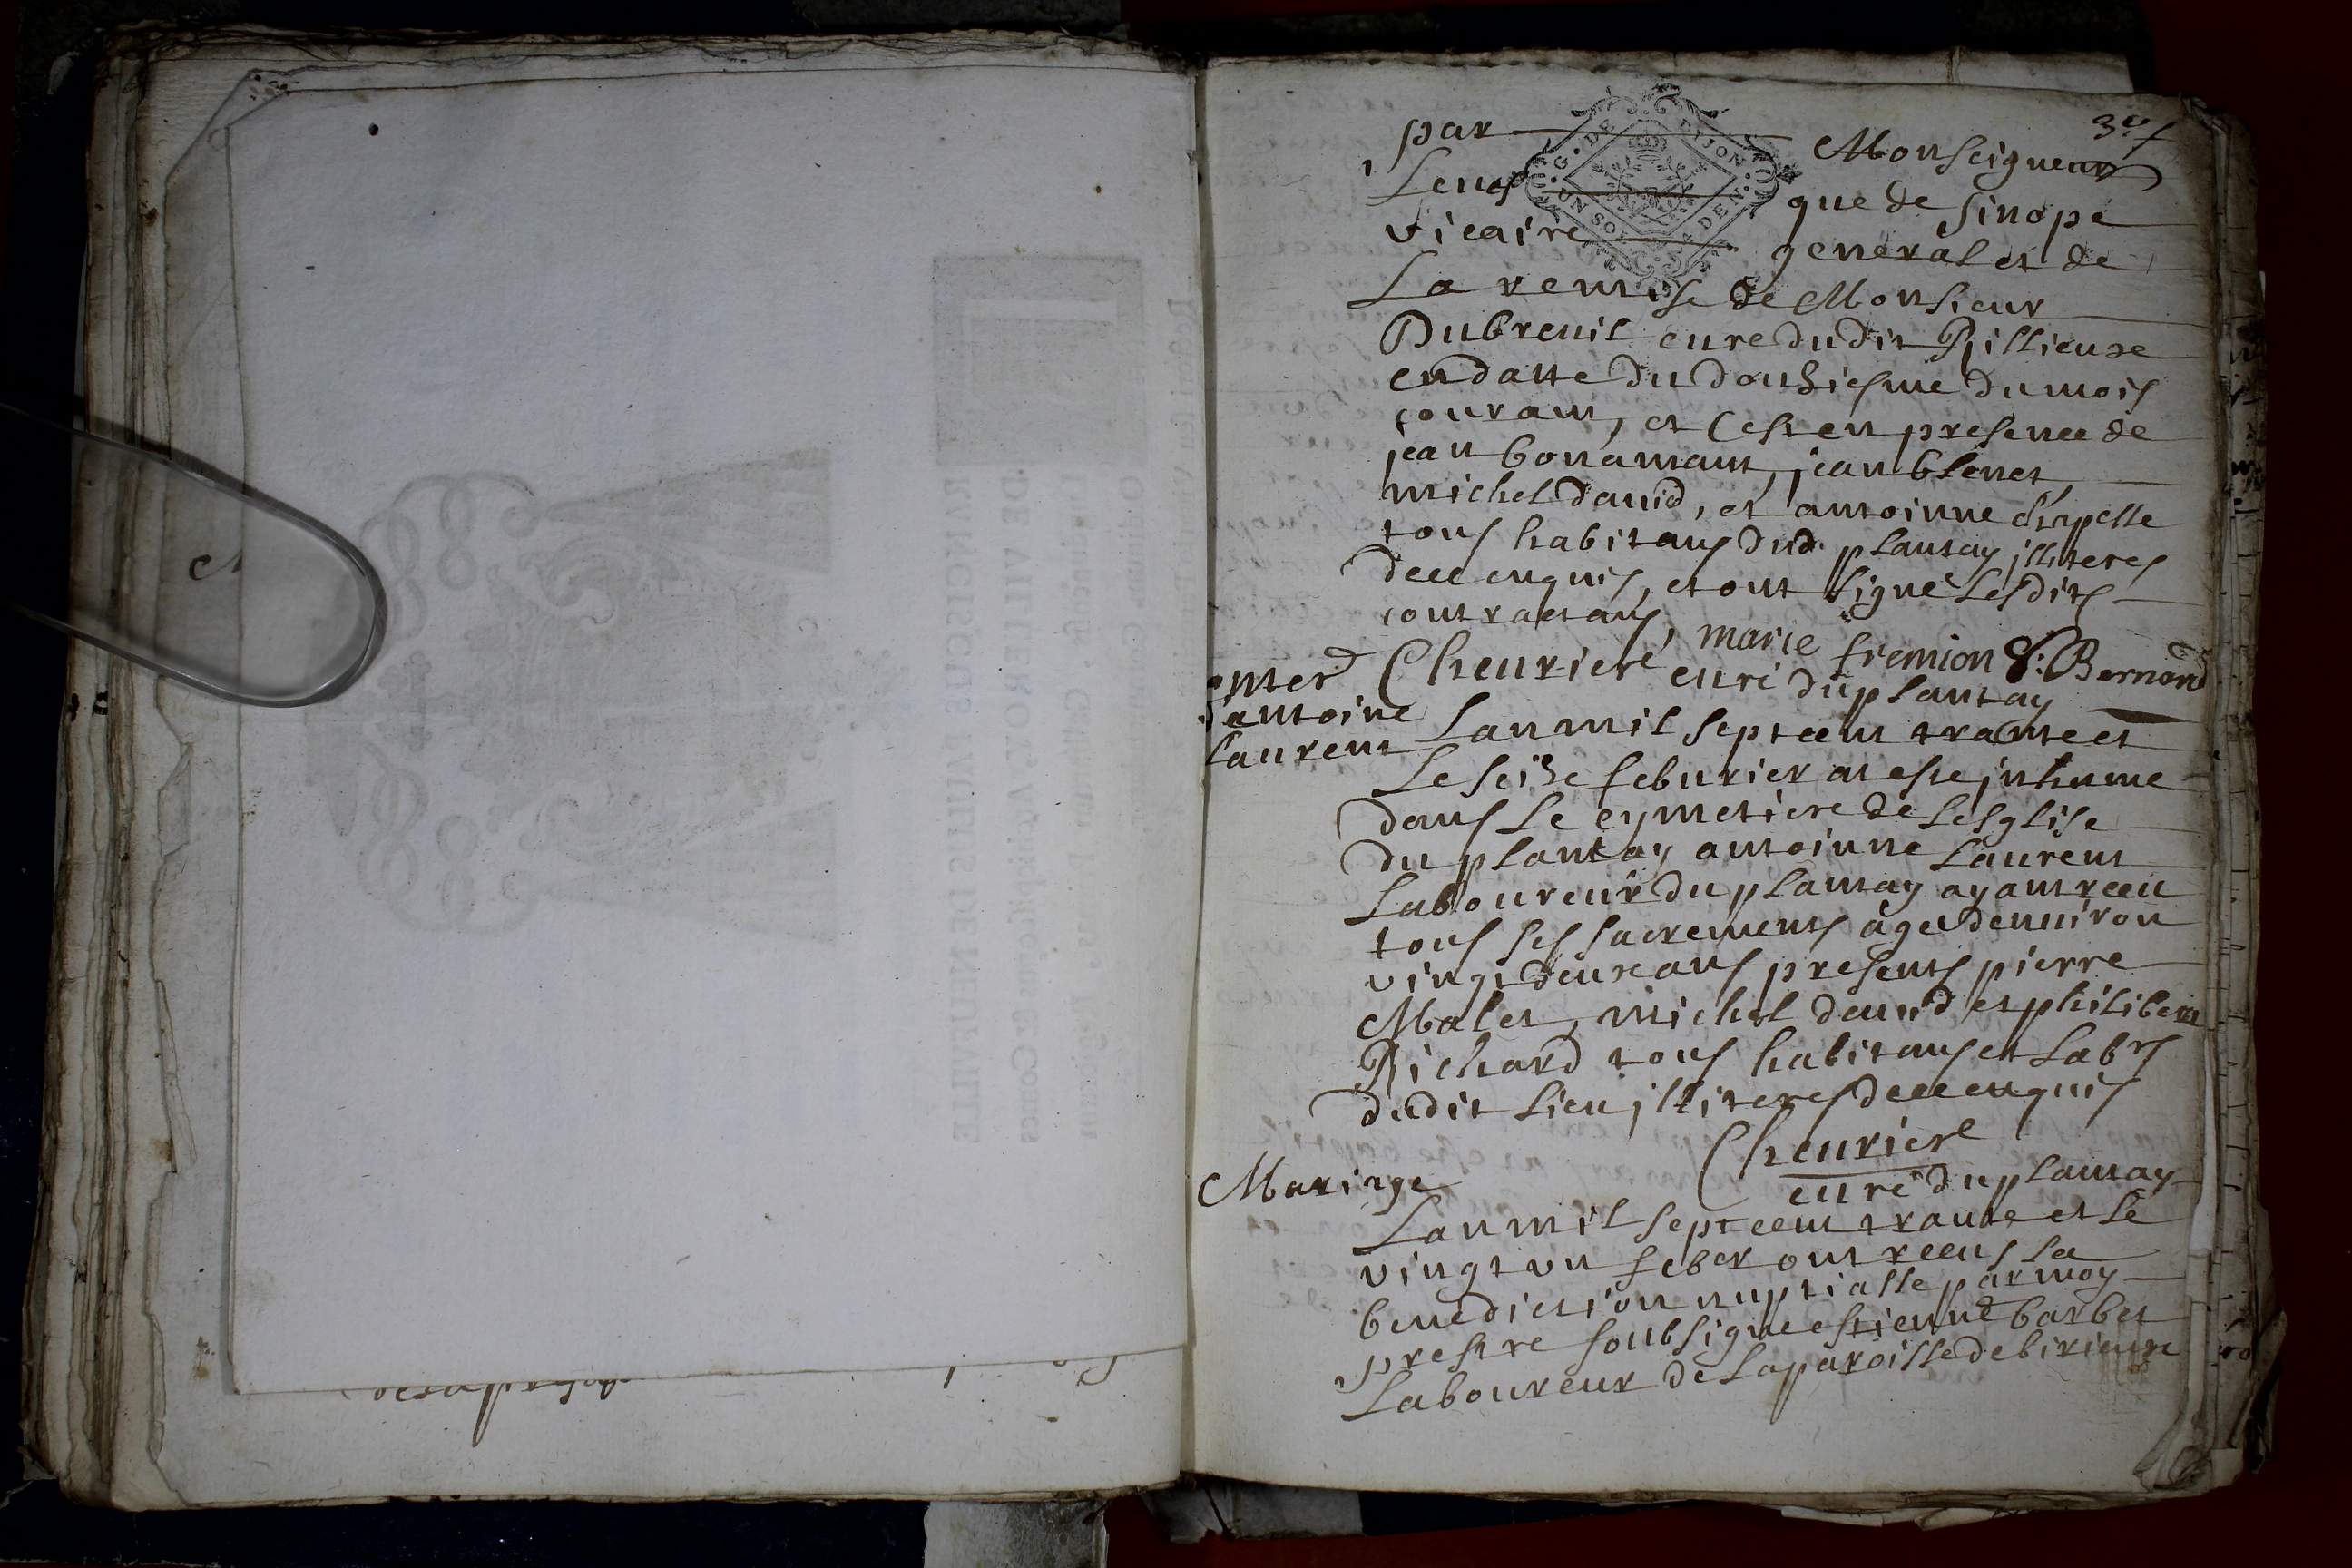 3e f
par Monseigneur
Leuesque de sinope
vicaire general et de
La remise de Monsieur
Dubreuil curé dudit Rillieuxe
en datte du douziesme du mois
courant, et c'est en presence de
jean bonamant, jean blenet
michel dauid, et antoinne chapelle
tous habitans dud. plantay jlliteres
dece enquis, et ont signé Lesdits
contractans,
Cheuriere marie fremion B: Bernard
curé du plantay
enter d'antoine Laurent
Lan mil sept cent trante et
Le seize feburier at este jnhumé
dans Le cymetiere de Lesglise
du plantay antoinne Laurent
Laboureur du plantay ayant receu
tous ses sacrements agé denuiron
vingt deuxe ans presents pierre
Malet, michel dauid et philibert
Richard tous habitans et Labrs
dudit Lieu jlliteres dece enquis
Cheuriere
curé du plantay
Mariage
Lan mil sept cent trante et Le
vingt vn feber ont receus La
benediction nuptialle par moy
prestre soubsigne estienne barbet
Laboureur de La paroisse de birieuxe
RANCISCUS PAULUS DE NEUFVILLE
DE VILLEROY